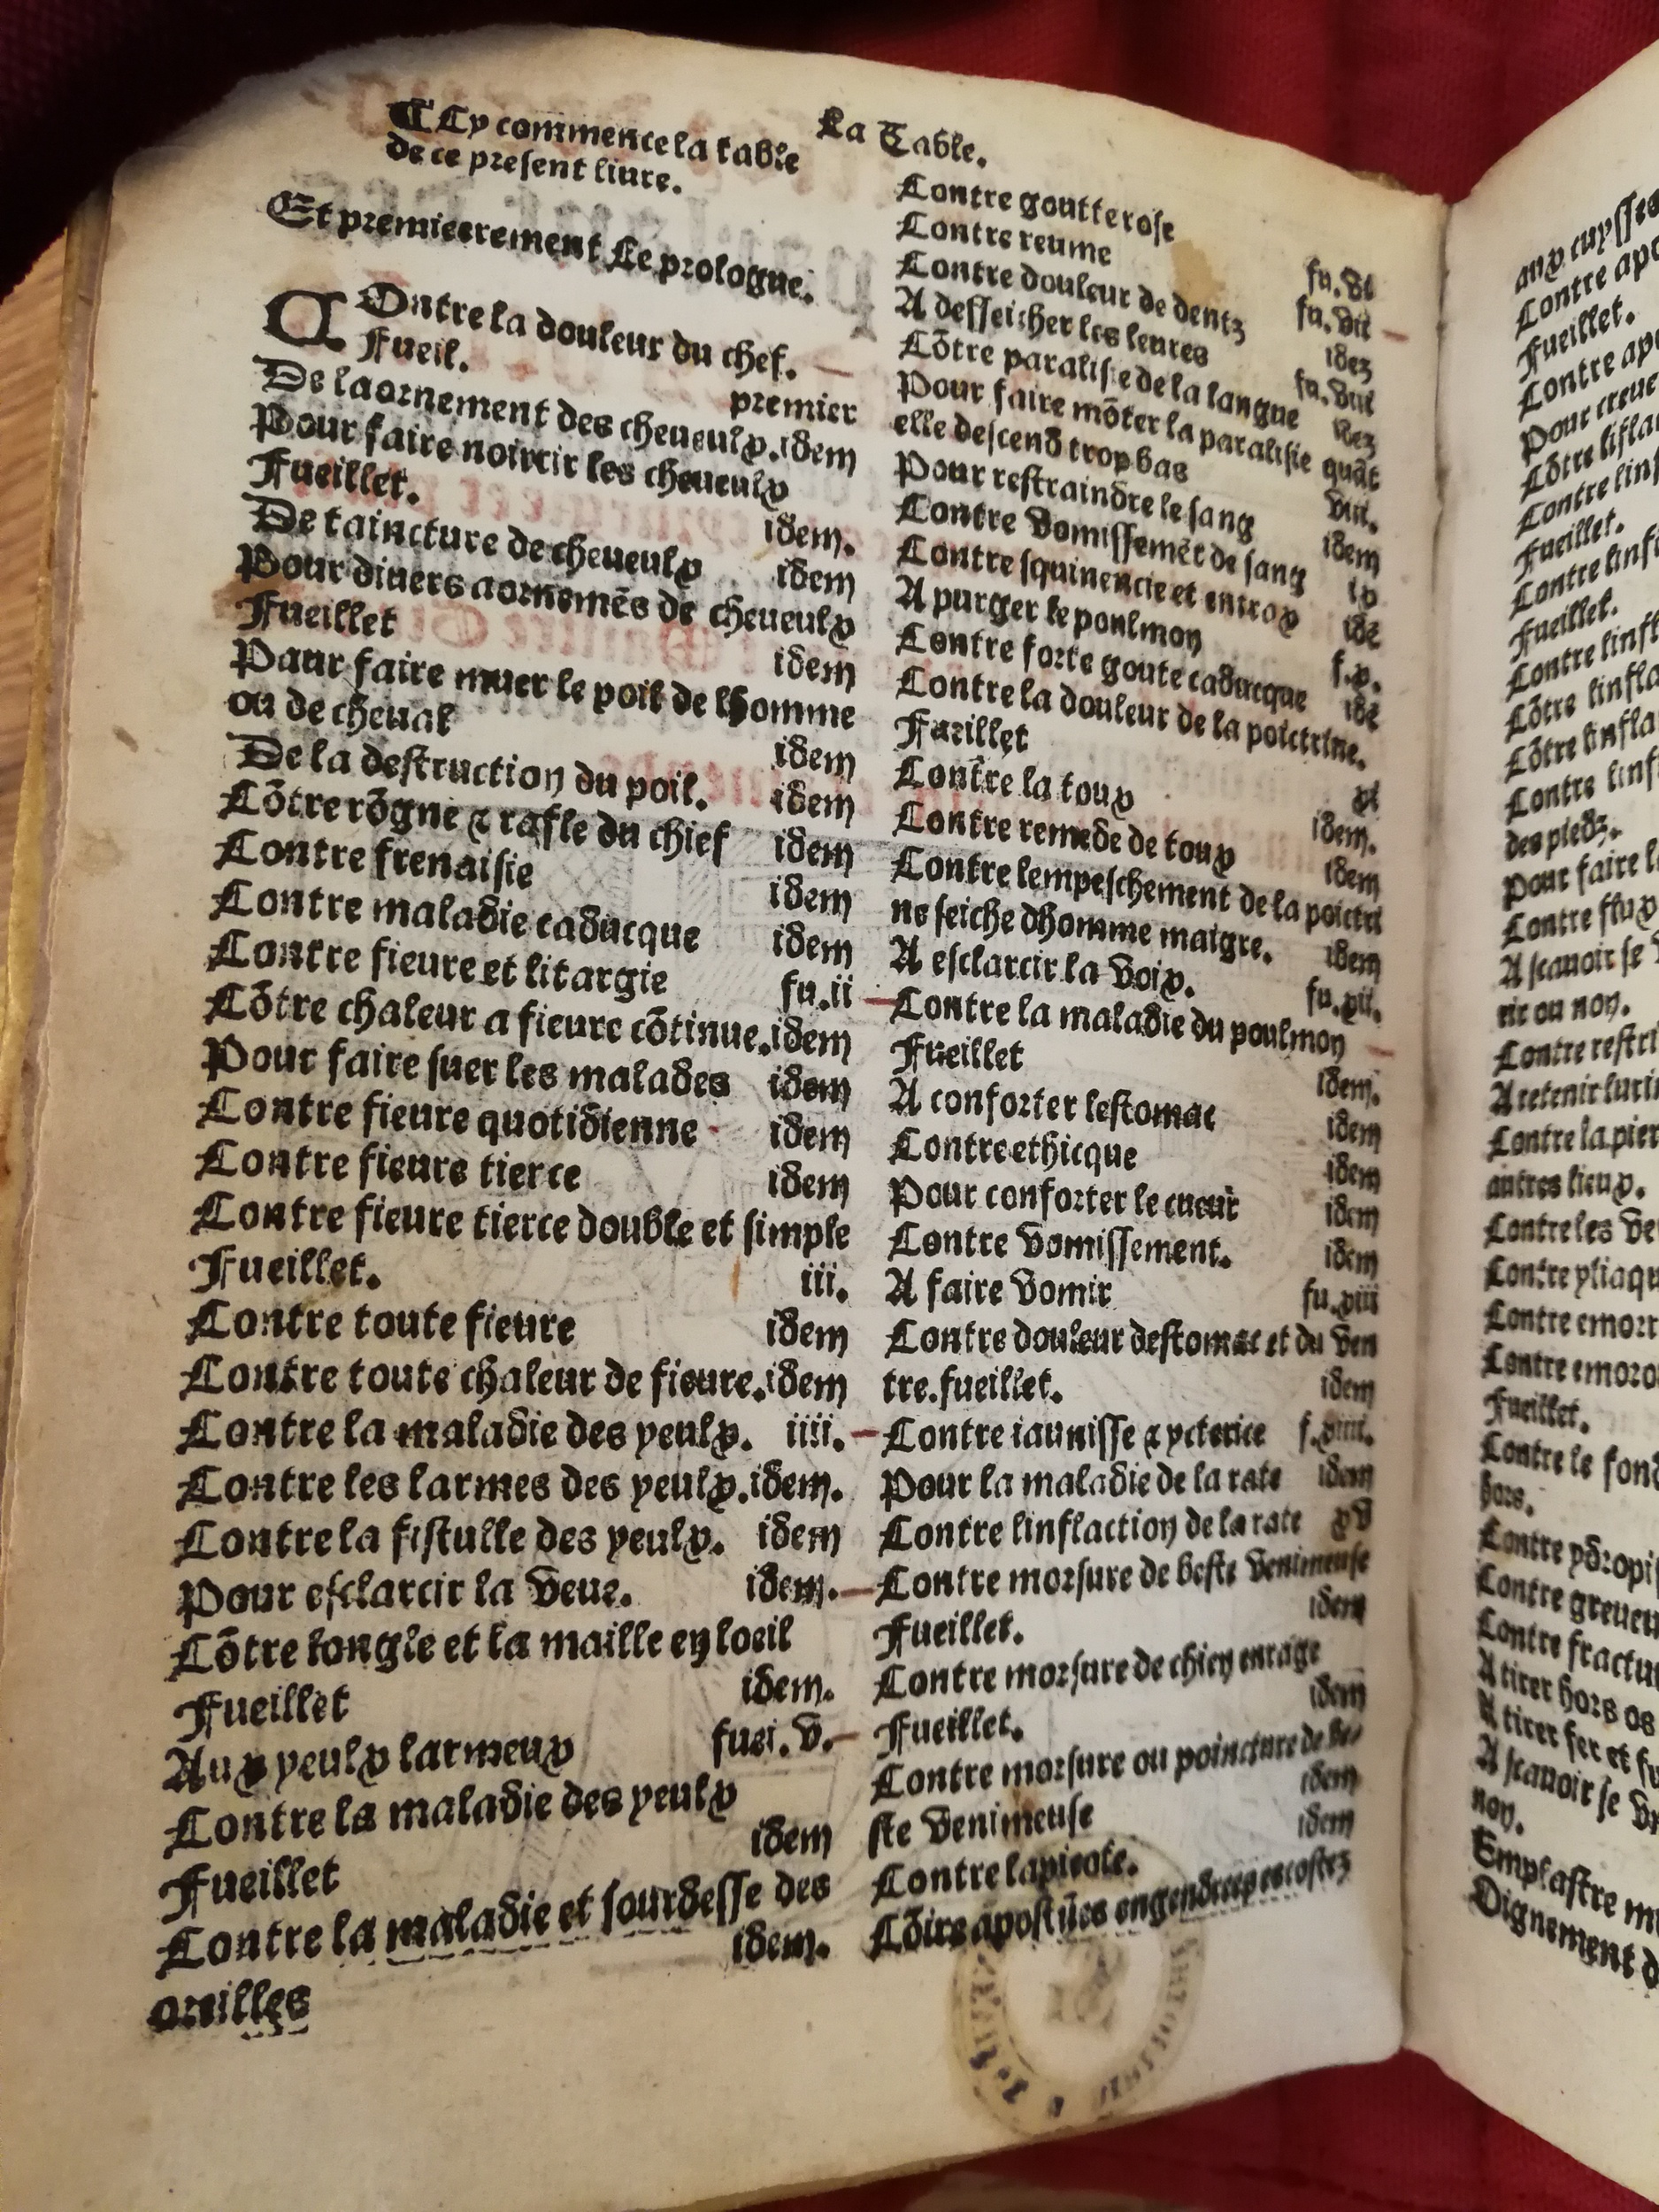 La Table.
¶ Cy commence la table
de ce present liure.
Et premieerement Le prologue.
COntre la douleur du chef.
Fueil. premier
De laornement des cheueulx. idem
Pour faire noircir les cheueulx
Fueillet. idem.
De taincture de cheueulx idem
Pour diuers aornemēs de cheueulx
Fueillet idem
Paur faire muer le poil de lhomme
ou de cheual idem
De la destruction du poil. idem
Cōtre rōgne ⁊ rafle du chief idem
Contre frenaisie idem
Contre maladie caducque idem
Contre fieure et litargie fu.ii
Cōtre chaleur a fieure cōtinue. idem
Pour faire suer les malades idem
Contre fieure quotidienne idem
Contre fieure tierce idem
Contre fieure tierce double et simple
Fueillet. iii.
Contre toute fieure idem
Contre toute chaleur de fieure. idem
Contre la maladie des yeulx. iiii.
Contre les larmes des yeulx. idem.
Contre la fistulle des yeulx. idem
Pour esclarcir la veue. idem.
Cōtre longle et la maille en loeil
Fueillet idem.
Aux yeulx larmeux fuei. v.
Contre la maladie des yeulx
Fueillet idem
Contre la maladie et sourdesse des
oreilles idem.
Contre goutterose fu.vi
Contre reume fu.vii
Contre douleur de dentz idez
A desseicher les leures fu.viii
Cōtre paralisie de la langue idez
Pour faire mōter la paralisie quāt
elle descend trop bas viii.
Pour restraindre le sang idem
Contre vomissemēt de sang ix
Contre squinencie et entrox idē
A purger le poulmon f.x.
Contre forte goute caducque idē
Contre la douleur de la poictrine.
Fueillet xi
Contre la toux idem.
Contre remede de toux idem
Contre lempeschement de la poictri
ne seiche dhomme maigre. idem
A esclarcir la voix. fu.xii.
Contre la maladie du poulmon
Fueillet idem.
A conforter lestomac idem
Contre ethicque idem
Pour conforter le cueur idem
Contre vomissement. idem
A faire vomir fu.xiii
Contre douleur destomac et du ven
tre. fueillet. idem
Contre iaunisse ⁊ ycterice f.xiiii.
Pour la maladie de la rate idem
Contre linflaction de la rate xv
Contre morsure de beste venimeuse
Fueillet. idem
Contre morsure de chien enrage
Fueillet. idem
Contre morsure ou poincture de be-
ste venimeuse idem
Contre lapicole. idem
Cōtre apostūes engendrees es costez
aux cuysses
Contre
Fueillet.
Contre
Pour
Cōtre
Contre
Fueillet.
Contre
Fueillet.
Contre
Cōtre
Cōtre
Contre
des piedz.
Pour faire
Contre flux
A scauoir se
rir ou non.
Contre
A retenir
Contre la
autres lieux.
Contre les
Contre
Contre
Contre
Fueillet.
Contre le
hors.
Contre
Contre
Contre
A tirer hors os
A tirer fer et
A scauoir se
non.
Emplastre
Oignement